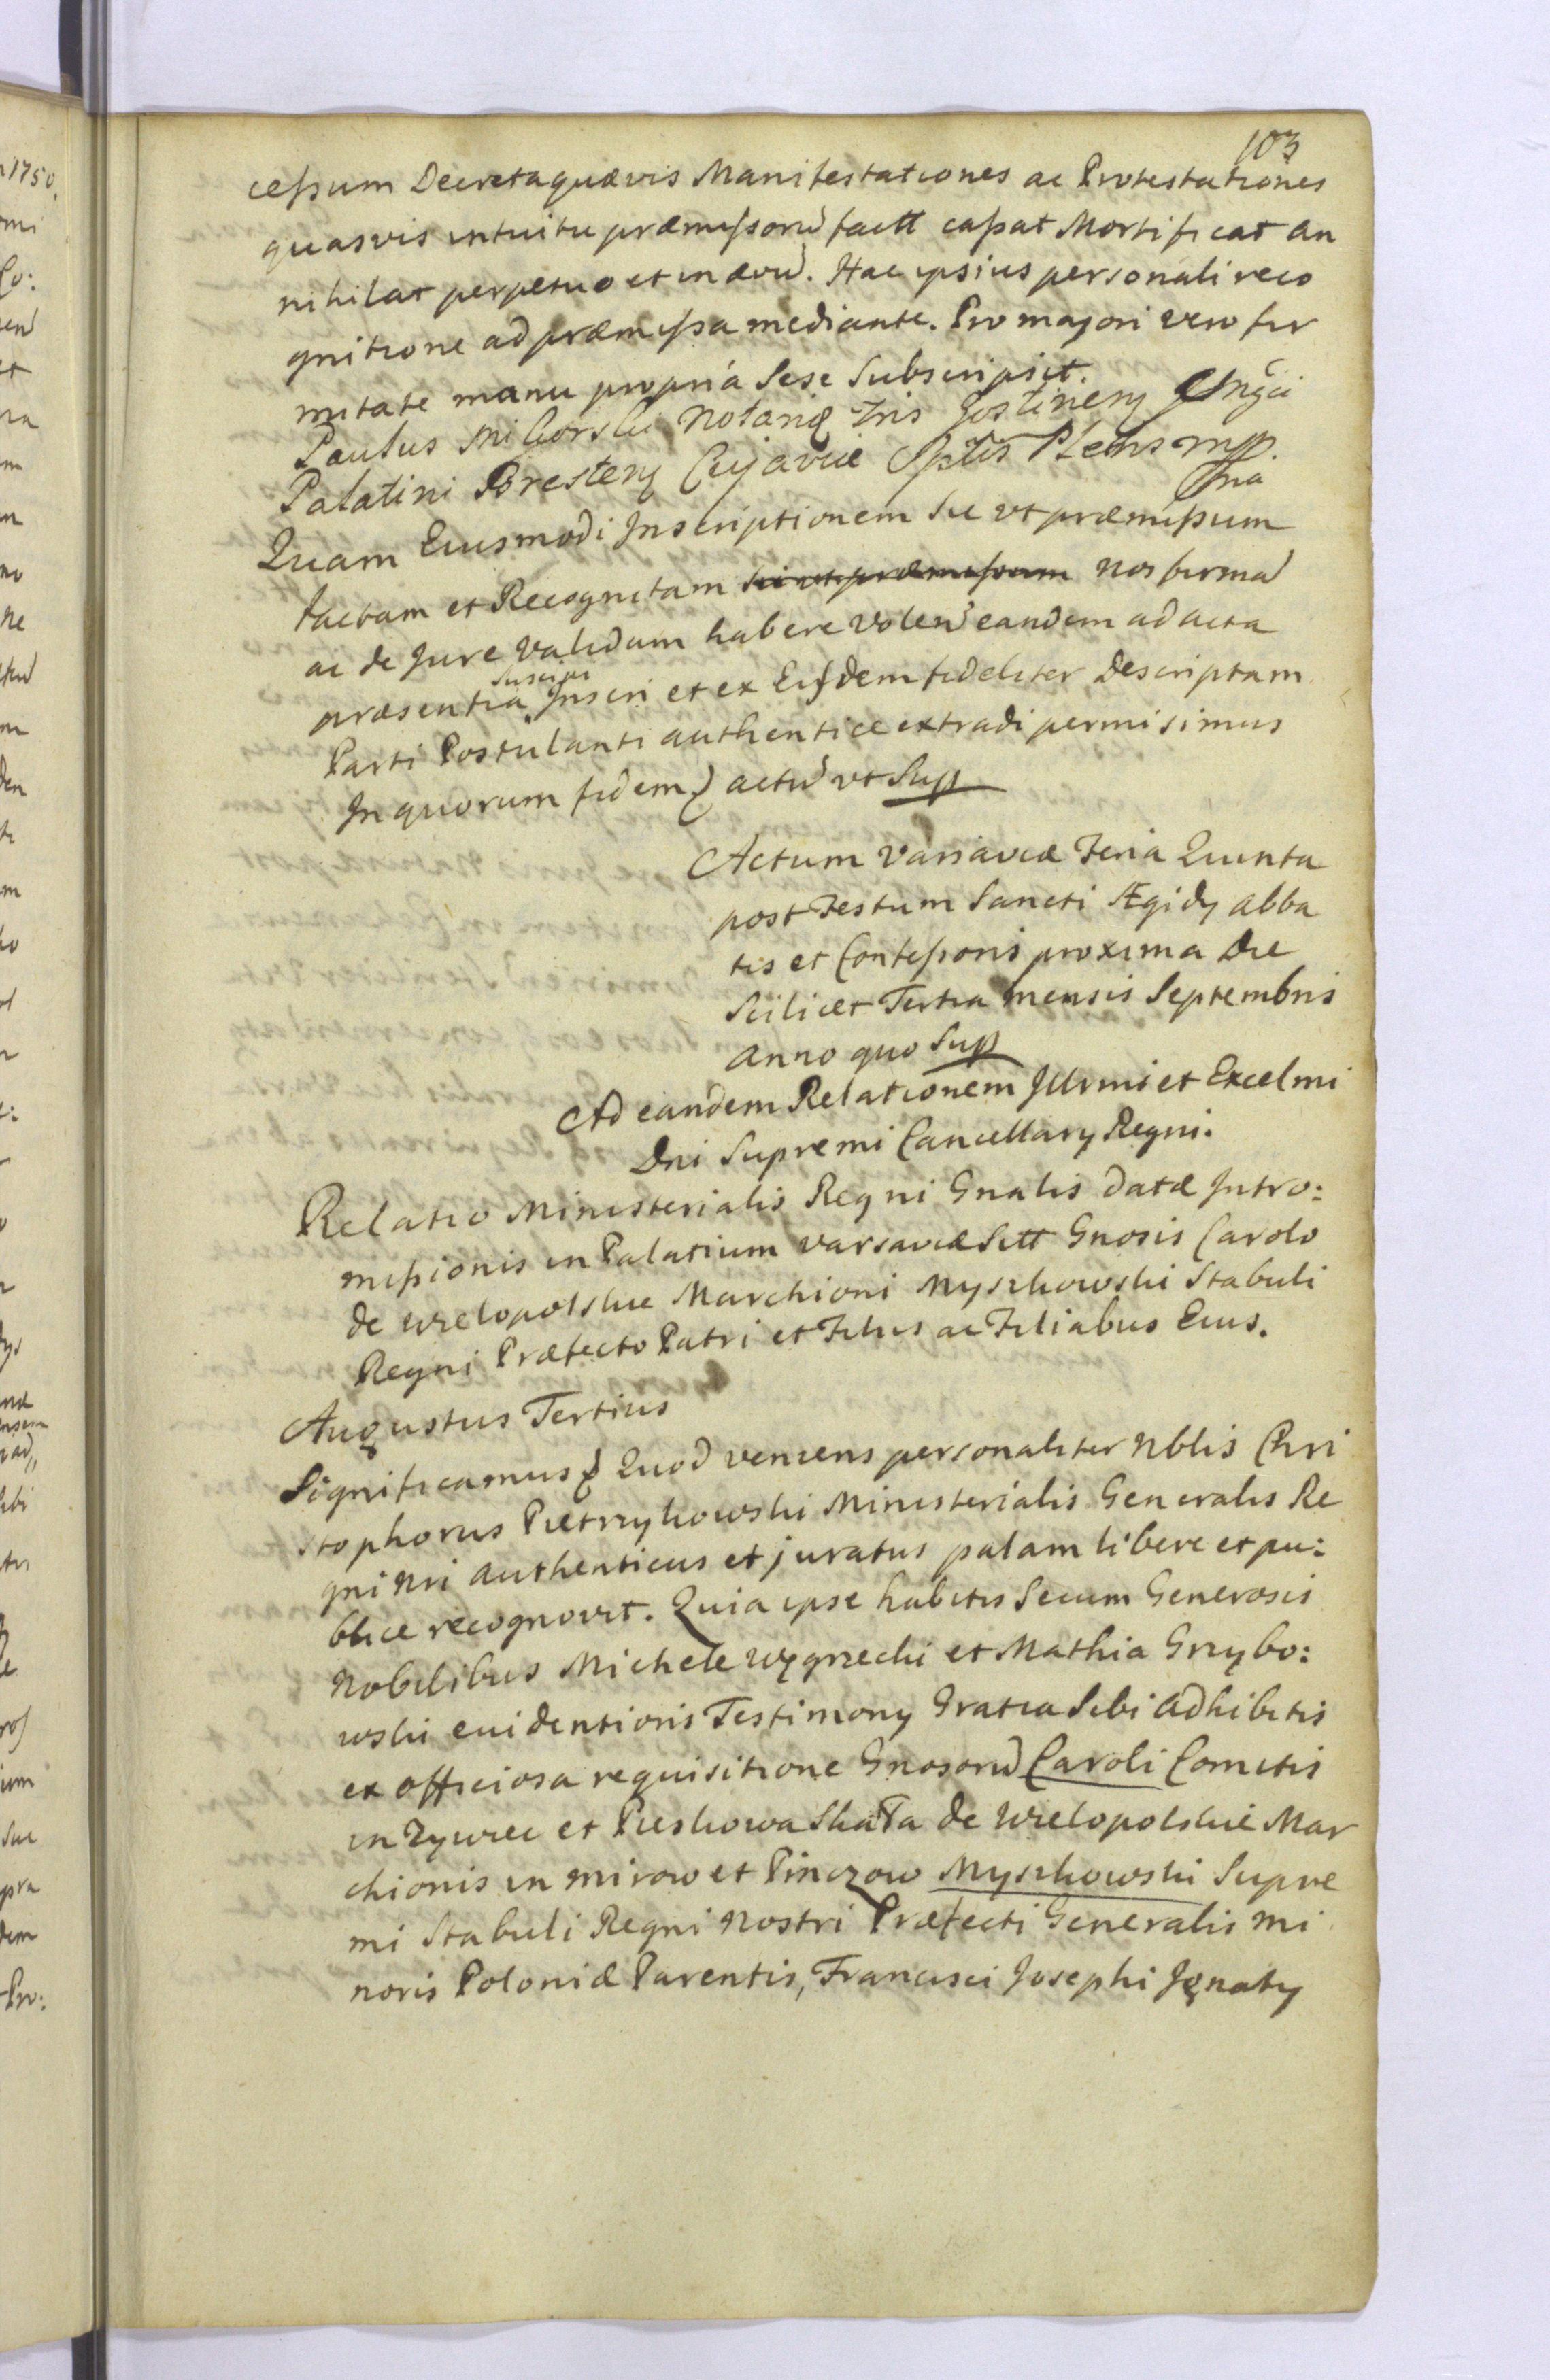 103
cessum Decreta quævis Manifestationes ac Protestationes
quasvis intuitu præmissorum factt cassat Mortificat an
nihilat perpetuo et in ævum. Hac ipsius personali reco
gnitione ad præmissa mediante. Pro majori vero fir
mitate manu propria Sese Subscripsit.
Paulus Mikorski Notarig Tris Gostinen
Palatini Bresten Cujaviæ mpp.
Quam Eiusmodi Inscriptionem Sic ut præmissum
factam et Recognitam sic ut præmissum nos firmam
ac de Jure Validam habere Volen eandem ad acta
præsentia Suscipi Inscri et ex Eisdem fideliter Descriptam
Parti Postulanti authentice extradi permisimus
In quorum fidem actum ut Sup
Actum Varsaviæ Feria Quinta
post Festum Sancti Ægidy abba
tis et Confessoris proxima Die
Scilicet Tertia mensis Septembris
Anno quo Sup
Ad eandem Relationem Illrmi et Excelmi
Dni Supremi Cancellary Regni.
Relatio Ministerialis Regni Gnalis datæ Intro:
missionis in Palatium Varsaviæ Sitt Gnosis Carolo
de Wielopolskie Marchioni Myszkowski Stabuli
Regni Præfecto Patri et Filiis ac Filiabus Eius.
Augustus Tertius
Significamus Quod veniens personaliter Nblis Chri
stophorus Pietrzykowski Ministerialis Generalis Re
gni Nri Authenticus et juratus palam libere et pu:
blice recognovit. Quia ipse habitis Secum Generosis
Nobilibus Michele Węgrzecki et Mathia Grzybo:
wski evidentioris Testimony Gratia Sibi Adhibitis
ex officiosa requisitione Gnosorum Caroli Comitis
in Zywiec et Pieskowa Skała de Wielopolskie Mar
chionis in Mirow et Pinczow Myszkowski Supre
mi Stabuli Regni Nostri Præfecti Generalis Mi
noris Poloniæ Parentis, Francisci Josephi Ignaty